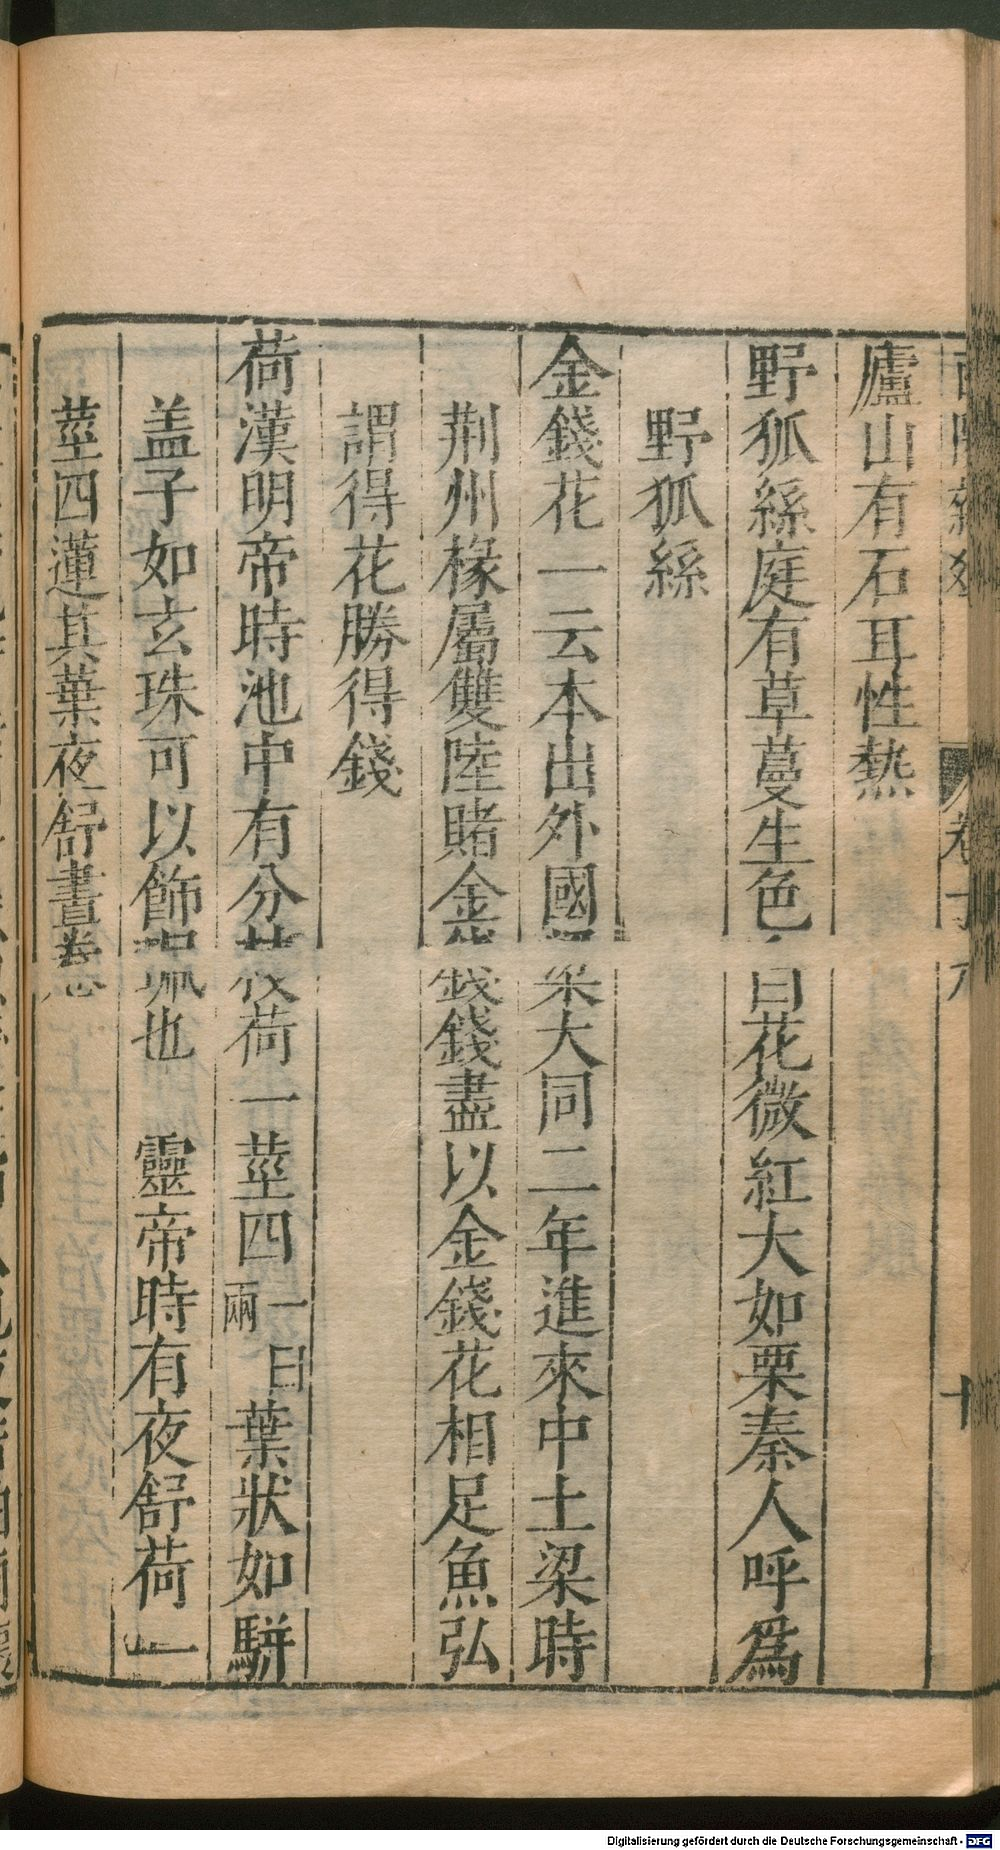 廬山有石耳性熱
野狐絲庭有草蔓生色白花微紅大如粟秦人呼爲
野狐絲
金錢花一云本出外國梁大同二年進來中土梁時
荆州椽屬雙陸賭金錢錢盡以金錢花相足魚弘
謂得花勝得錢
荷漢明帝時池中有分枝荷一莖四一曰兩葉狀如駢
盖子如玄珠可以飾珮也 靈帝時有夜舒荷一
莖四蓮其葉夜舒晝卷
Digitalisierung gefördert durch die Deutsche Forschungsgemeinschaft - DFG